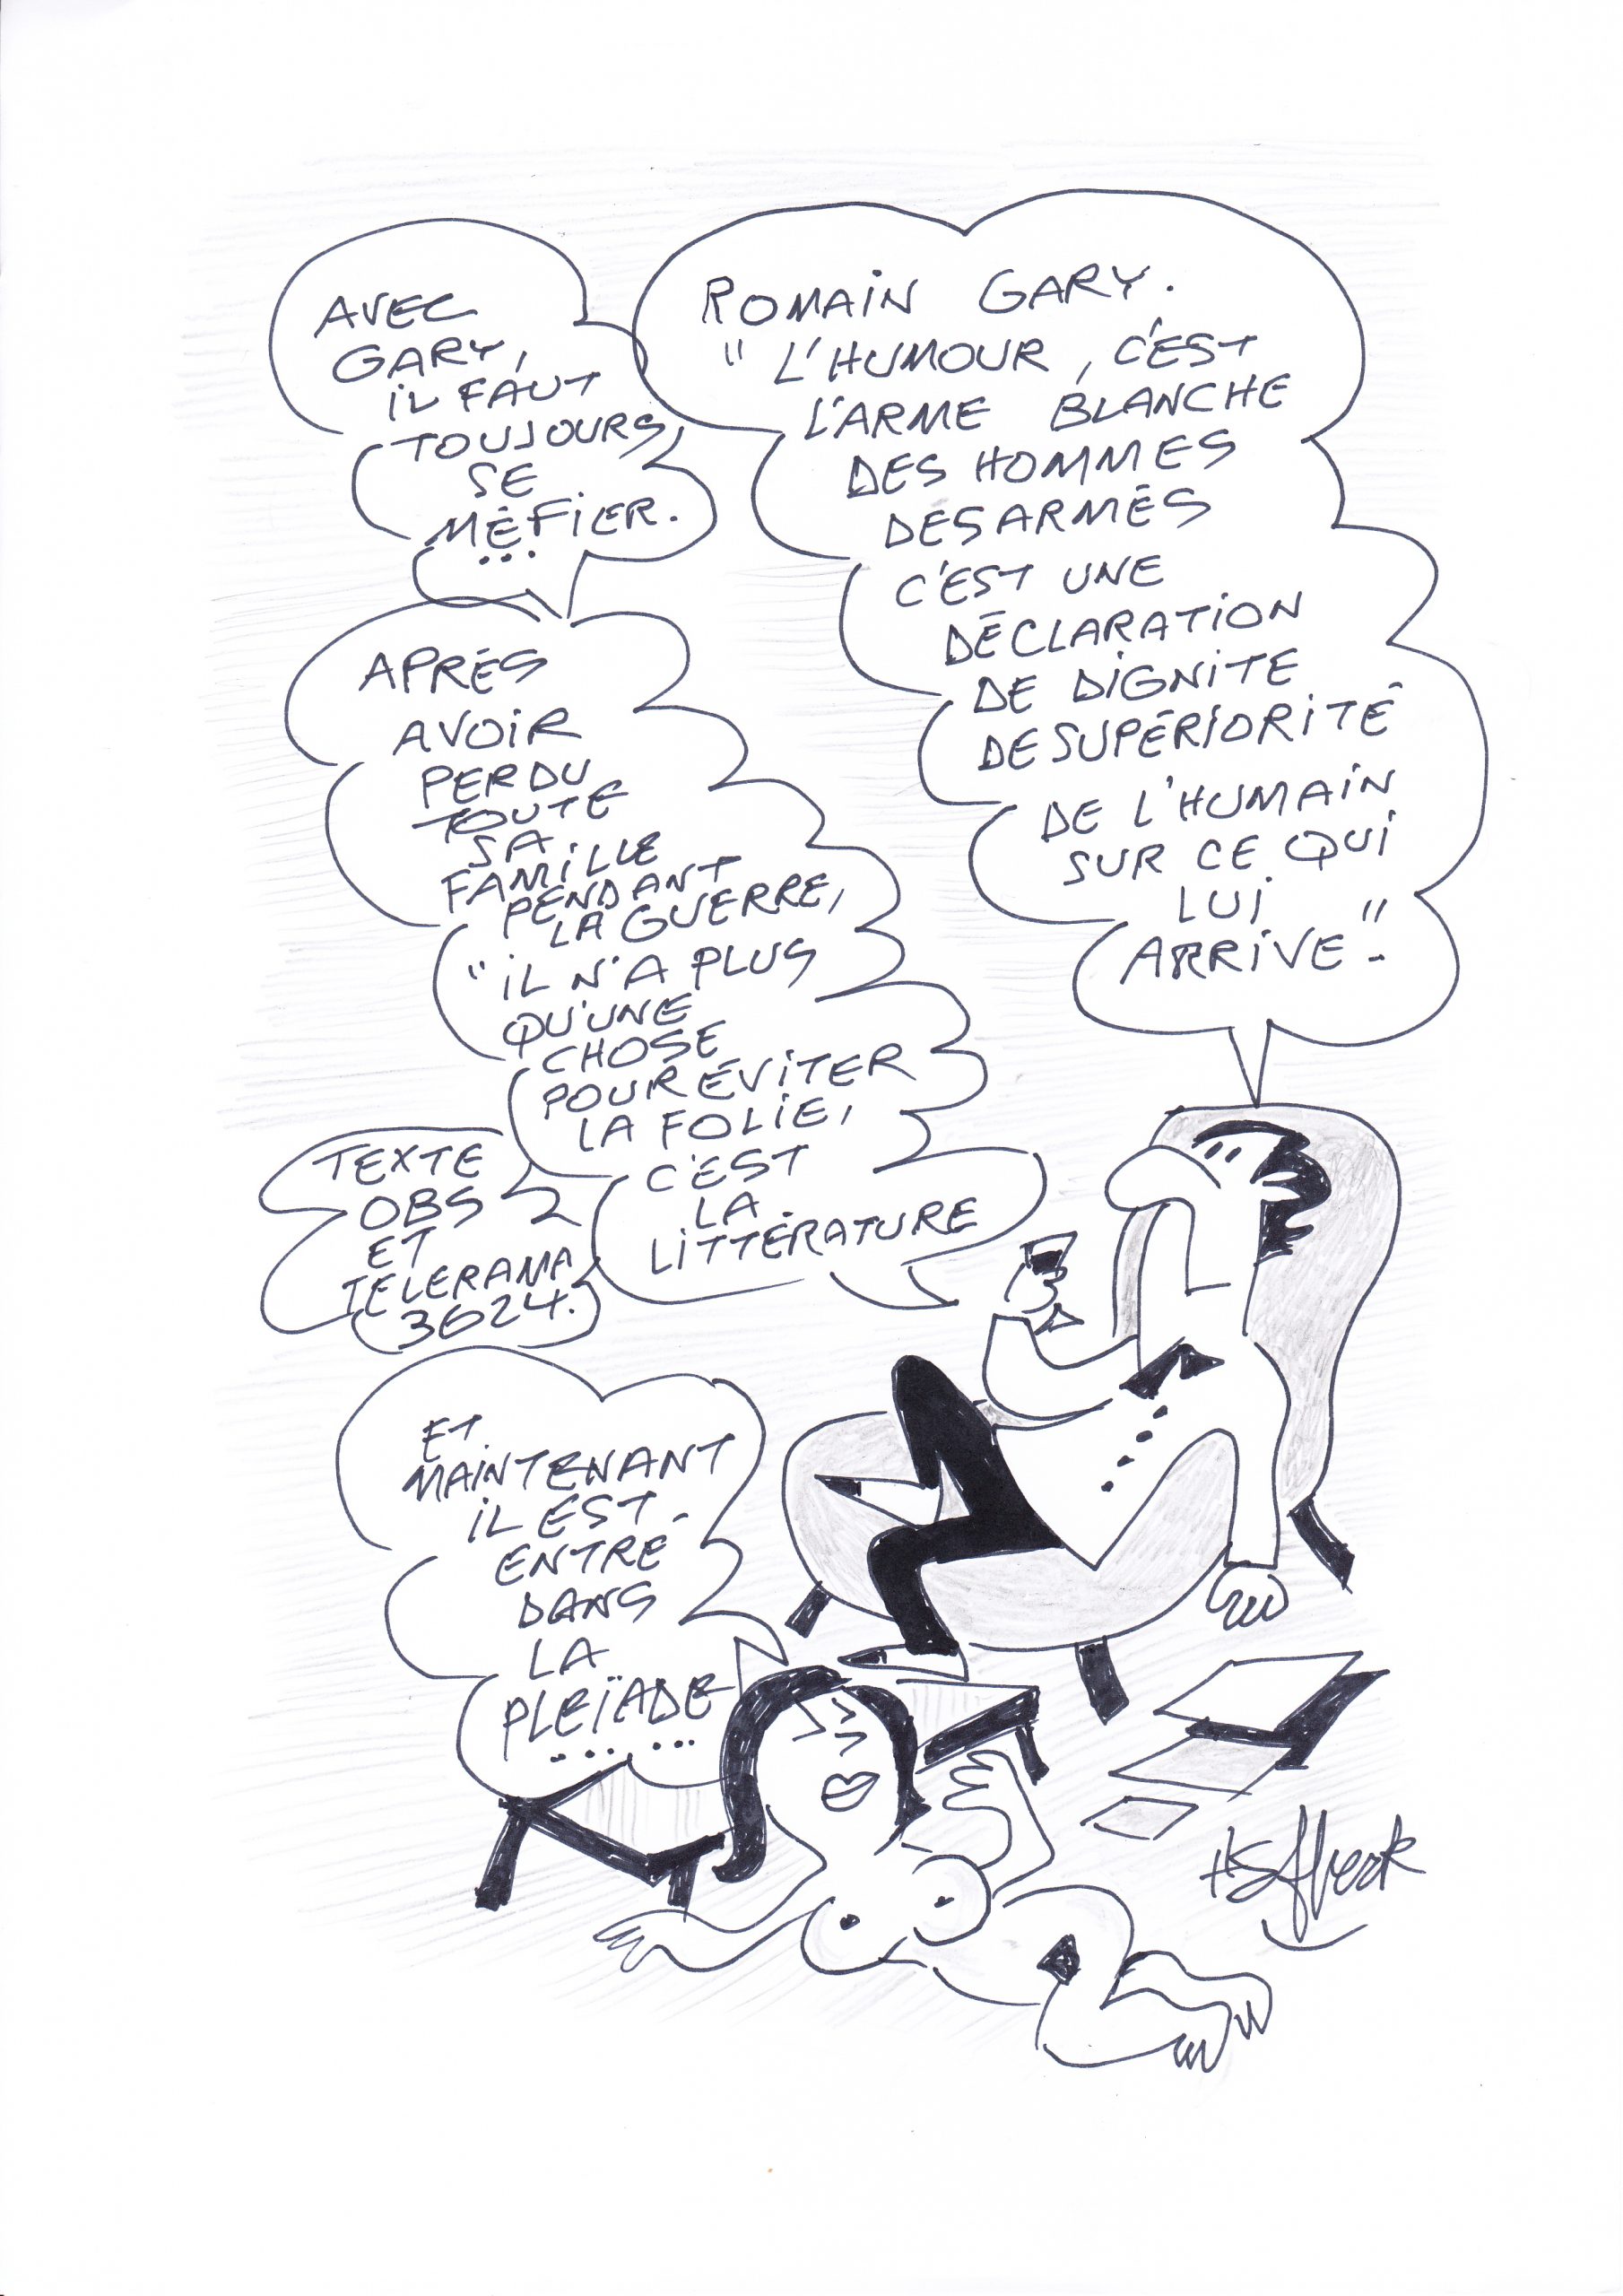 AVEC
GARY,
IL FAUT
TOUJOURS
SE
MÉFIER.
...
ROMAIN GARY.
" L'HUMOUR, C'EST
L'ARME BLANCHE
DES HOMMES
DÉSARMÉS
C'EST UNE
DÉCLARATION
DE DIGNITE
DE SUPÉRIORITÉ
DE L'HUMAIN
SUR CE QUI
LUI
ARRIVE".
APRÉS
AVOIR
PERDU
TOUTE
SA
FAMILLE
PENDANT
LA GUERRE,
"IL N'A PLUS
QU'UNE
CHOSE
POUR ÉVITER
LA FOLIE,
C'EST
LA
LITTÉRATURE
TEXTE
OBS
ET
TELERAMA
3624.
ET
MAINTENANT
IL EST
ENTRÉ
DANS
LA
PLEÏADE
... ...